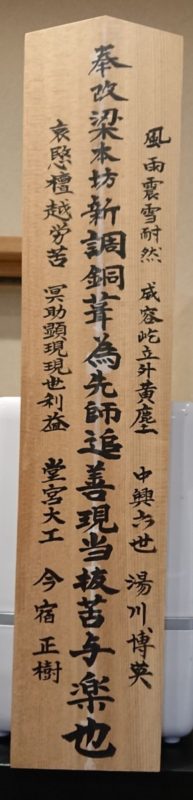 風雨震雪耐然 威容屹立外黄塵 中興六世 湯川博英
奉改梁本坊新調銅葺為先師追善現当抜苦与楽也
哀愍檀越労苦 冥助顕現現世利益 堂宮大工 今宿正樹